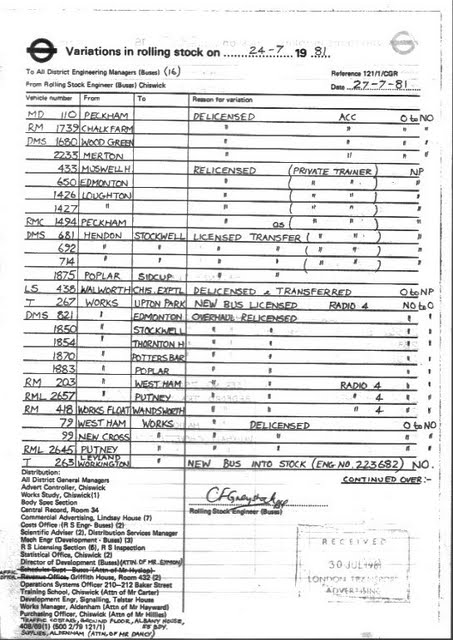 Variations in rolling stock on 24-7 19 81
To All District Engineering Managers (Buses) (16) Reference 121/1/CGR
From Rolling Stock Engineer (Buses) Chiswick Date 27-7-81
Vehicle number From To Reason for variation
MD 110 PECKHAM DELICENSED ACC O to NO
RM 1739 CHALK FARM " " " "
DMS 1680 WOOD GREEN " " " "
2233 MERTON " " " "
433 MUSWELL H RELICENSED (PRIVATE TRAINER) NP
650 EDMONTON " ( " " ) "
1426 LOUGHTON " ( " " ) "
1427 " " ( " " ) "
RMC 1494 PECKHAM " as ( " " ) "
DMS 681 HENDON STOCKWELL LICENSED TRANSFER ( " " ) "
692 " " " " ( " " ) "
714 " " " " ( " " ) "
1875 POPLAR SIDCUP " " "
LS 438 WALWORTH CHIS. EXPTL DELICENSED & TRANSFERRED O to NP
T 267 WORKS UPTON PARK NEW BUS LICENSED RADIO 4 NO to O
DMS 821 " EDMONTON OVERHAUL RELICENSED "
1850 " STOCKWELL " " "
1854 " THORNTON H " " "
1870 " POTTERS BAR " " "
1883 " POPLAR " " "
RM 203 " WEST HAM " " RADIO 4 "
RML 2657 " PUTNEY " " " 4 "
RM 418 WORKS FLOAT WANDSWORTH " " " 4 "
79 WEST HAM WORKS DELICENSED O to NO
99 NEW CROSS " " "
RML 2645 PUTNEY " " "
T 263 LEYLAND WORKINGTON NEW BUS INTO STOCK (ENG NO. 223682) NO.
CONTINUED OVER:-
Distribution:
All District General Managers
Advert Controller, Chiswick
Works Study, Chiswick (1)
Body Spec Section
Central Record, Room 34
Commercial Advertising, Lindsay House (7)
Costs Office (R S Engr- Buses) (2)
Scientific Adviser (2), Distribution Services Manager
Mech Engr (Development - Buses) (3)
R S Licensing Section (6), R S Inspection
Statistical Office, Chiswick (2)
Director of Development (Buses) (ATTN. OF MR. SIMMON)
Schedules Dept - Buses (Attn of Mr Hyslop)
Revenue Office, Griffith House, Room 432 (2)
Operations Systems Officer 210-212 Baker Street
Training School, Chiswick (Attn of Mr Carter)
Development Engr, Signalling, Telstar House
Works Manager, Aldenham (Attn of Mr Hayward)
Purchasing Officer, Chiswick (Attn of Mr Hillies)
TRAFFIC COSTING, GROUND FLOOR, ALBANY HOUSE,
408/89(1) (500 2/79 121/1) 55 BDY.
SUPPLIES, ALDENHAM (ATTN. OF MR DANCY)
Rolling Stock Engineer (Buses)
RECEIVED
30 JUL 1981
LONDON TRANSPORT
ADVERTISING